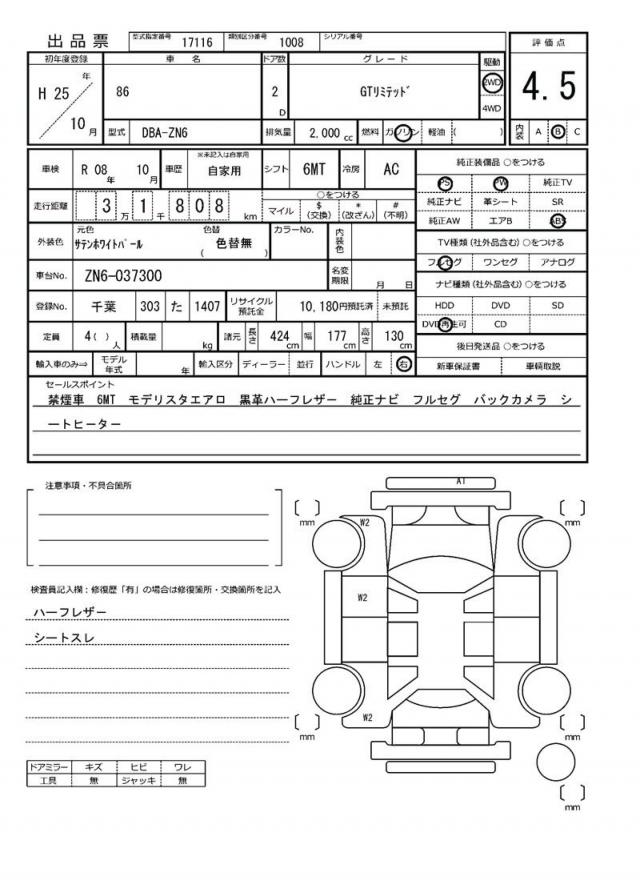 出品票 型式指定番号 17116 類別区分番号 1008 シリアル番号
評価点 4.5
初年度登録 車名 ドア数 グレード 駆動
H 25 年 10 月 86 2 D GTリミテッド 2WD 4WD
型式 DBA-ZN6 排気量 2,000 cc 燃料 ガソリン 軽油 ( ) 内装 A B C
車検 R 08 年 10 月 車歴 ※未記入は自家用 自家用 シフト 6MT 冷房 AC
走行距離 3 万 1 千 8 0 8 km ○をつける マイル $ (交換) * (改ざん) # (不明)
外装色 元色 サテンホワイトパール 色替 ( 色替無 ) カラーNo. 内装色
車台No. ZN6-037300 名変期限 月 日
登録No. 千葉 303 た 1407 リサイクル預託金 10,180円預託済 未預託
定員 4( ) 人 積載量 kg 諸元 長さ 424 cm 幅 177 cm 高さ 130 cm
輸入車のみ⇒ モデル年式 年 輸入区分 ディーラー 並行 ハンドル 左 右
純正装備品 ○をつける
PS PW 純正TV
純正ナビ 革シート SR
純正AW エアB ABS
TV種類 (社外品含む) ○をつける
フルセグ ワンセグ アナログ
ナビ種類 (社外品含む) ○をつける
HDD DVD SD
DVD再生可 CD
後日発送品 ○をつける
新車保証書 車輌取説
セールスポイント
禁煙車 6MT モデリスタエアロ 黒革ハーフレザー 純正ナビ フルセグ バックカメラ シ
ートヒーター
注意事項・不具合箇所
検査員記入欄：修復歴「有」の場合は修復箇所・交換箇所を記入
ハーフレザー
シートスレ
ドアミラー キズ ヒビ ワレ
工具 無 ジャッキ 無
A1
W2
W2
W2
mm
mm
mm
mm
mm